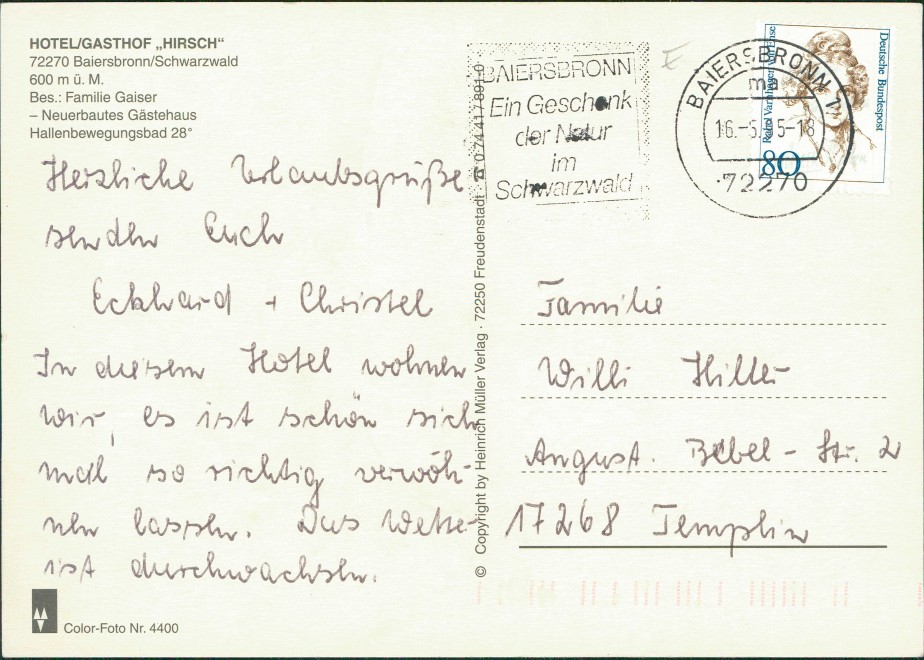 HOTEL/GASTHOF „HIRSCH“
72270 Baiersbronn/Schwarzwald
600 m ü. M.
Bes.: Familie Gaiser
– Neuerbautes Gästehaus
Hallenbewegungsbad 28°
Herzliche Urlaubsgrüße
senden Euch
Eckhard + Christel
In diesem Hotel wohnen
wir, es ist schön sich
mal so richtig verwöh-
nen lassen. Das Wetter
ist durchwachsen.
Color-Foto Nr. 4400
© Copyright by Heinrich Müller Verlag · 72250 Freudenstadt · ☎ 0 74 41 / 891-0
BAIERSBRONN
Ein Geschenk
der Natur
im
Schwarzwald
BAIERSBRONN 1
ma
16.-5.95-18
72270
Deutsche Bundespost
Rahel Varnhagen von Ense
80
Familie
Willi Hiller
August. Bebel - Str. 2
17268 Templin